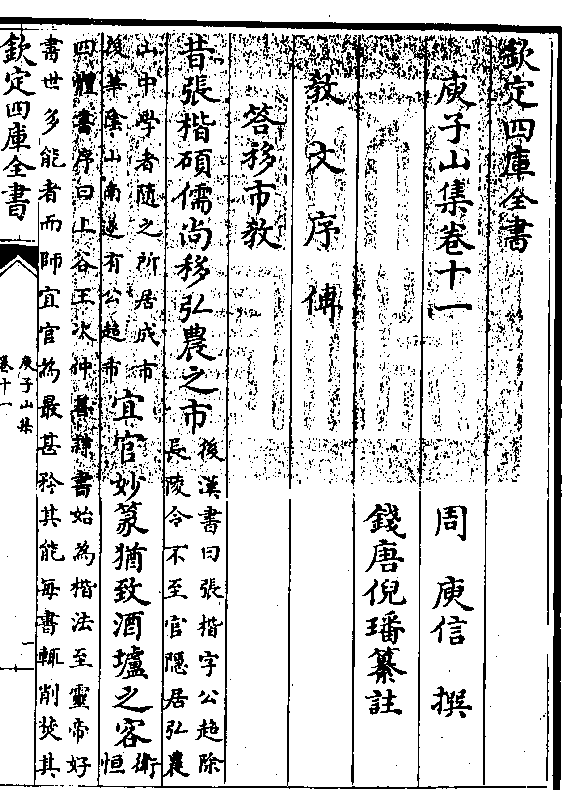 欽定四庫全書
庾子山集卷十一
周 庾信 撰
錢唐倪璠纂註
教 文 序 傳
答移市教
昔張楷碩儒尚移弘農之市後漢書曰張楷字公超除
長陵令不至官隱居弘農
山中學者隨之所居成市
後華陰山南遂有公超市宜官妙篆猶致酒壚之客衛恒
四體書序曰上谷王次仲善隸書始為楷法至靈帝好
書世多能者而師宜官為最甚矜其能每書輒削焚其
欽定四庫全書
庾子山集
卷十一
一